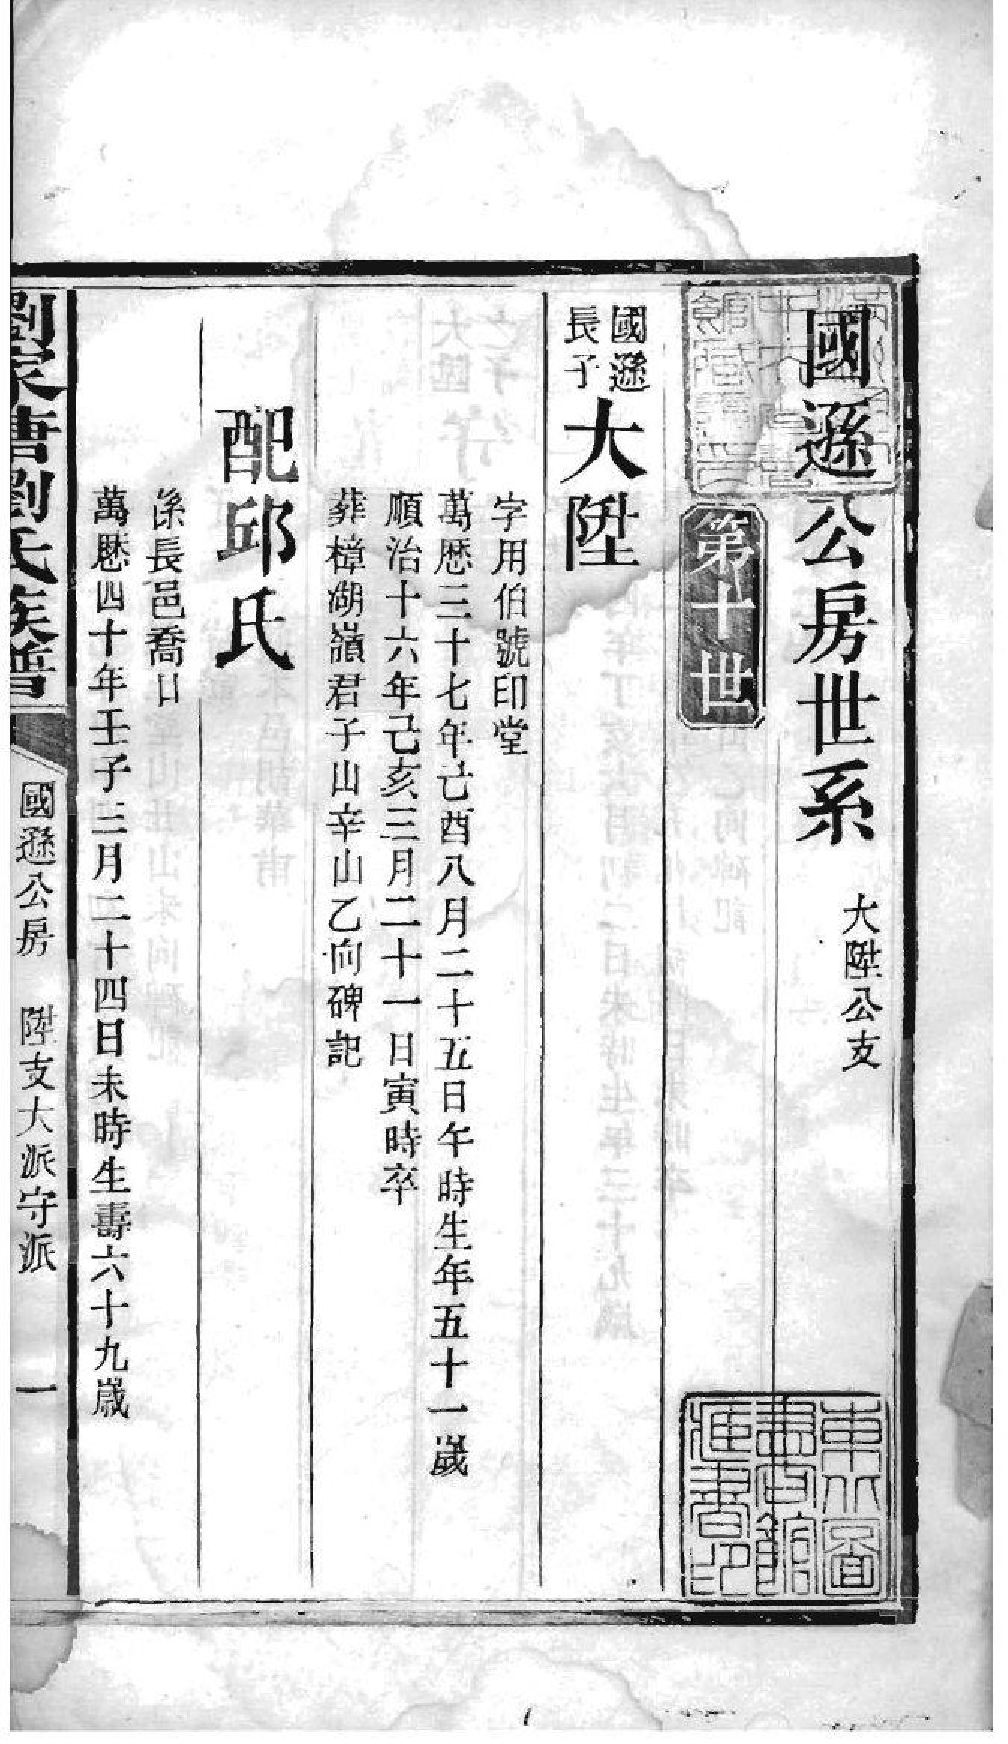 國遜公房世系
大陞公支
第十世
國遜
長子
大陞
字用伯號印堂
萬歷三十七年己酉八月二十五日午時生年五十一歲
順治十六年己亥三月二十一日寅時卒
葬樟湖嶺君子山辛山乙向碑記
配邱氏
係長邑喬口
萬歷四十年壬子三月二十四日未時生壽六十九歲
劉家塘劉氏族譜
國遜公房　陞支大派守派
一
東北圖
書館